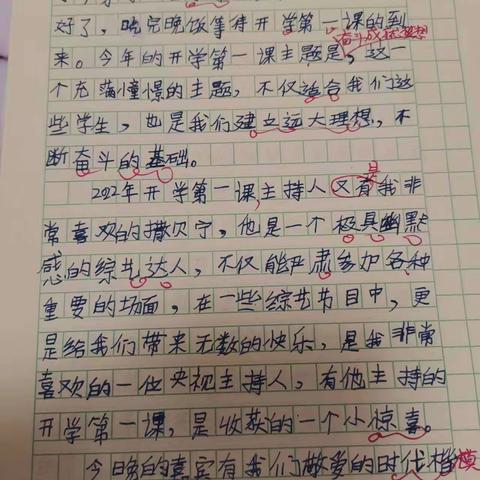 好了，吃完晚饭等待开学第一课的到
奋斗成就梦想
来。今年的开学第一课主题是，这一
个充满憧憬的主题，不仅适合我们这
些学生，也是我们建立远大理想，不
断奋斗的基础。
是
2022年开学第一课，主持人又有我非
常喜欢的撒贝宁，他是一个极具幽默
感的综艺达人，不仅能严肃参加各种
重要的场面，在一些综艺节目中，更
是给我们带来无数的快乐，是我非常
喜欢的一位央视主持人，有他主持的
开学第一课，是收获的一个小惊喜。
今晚的嘉宾有我们敬爱的时代楷模